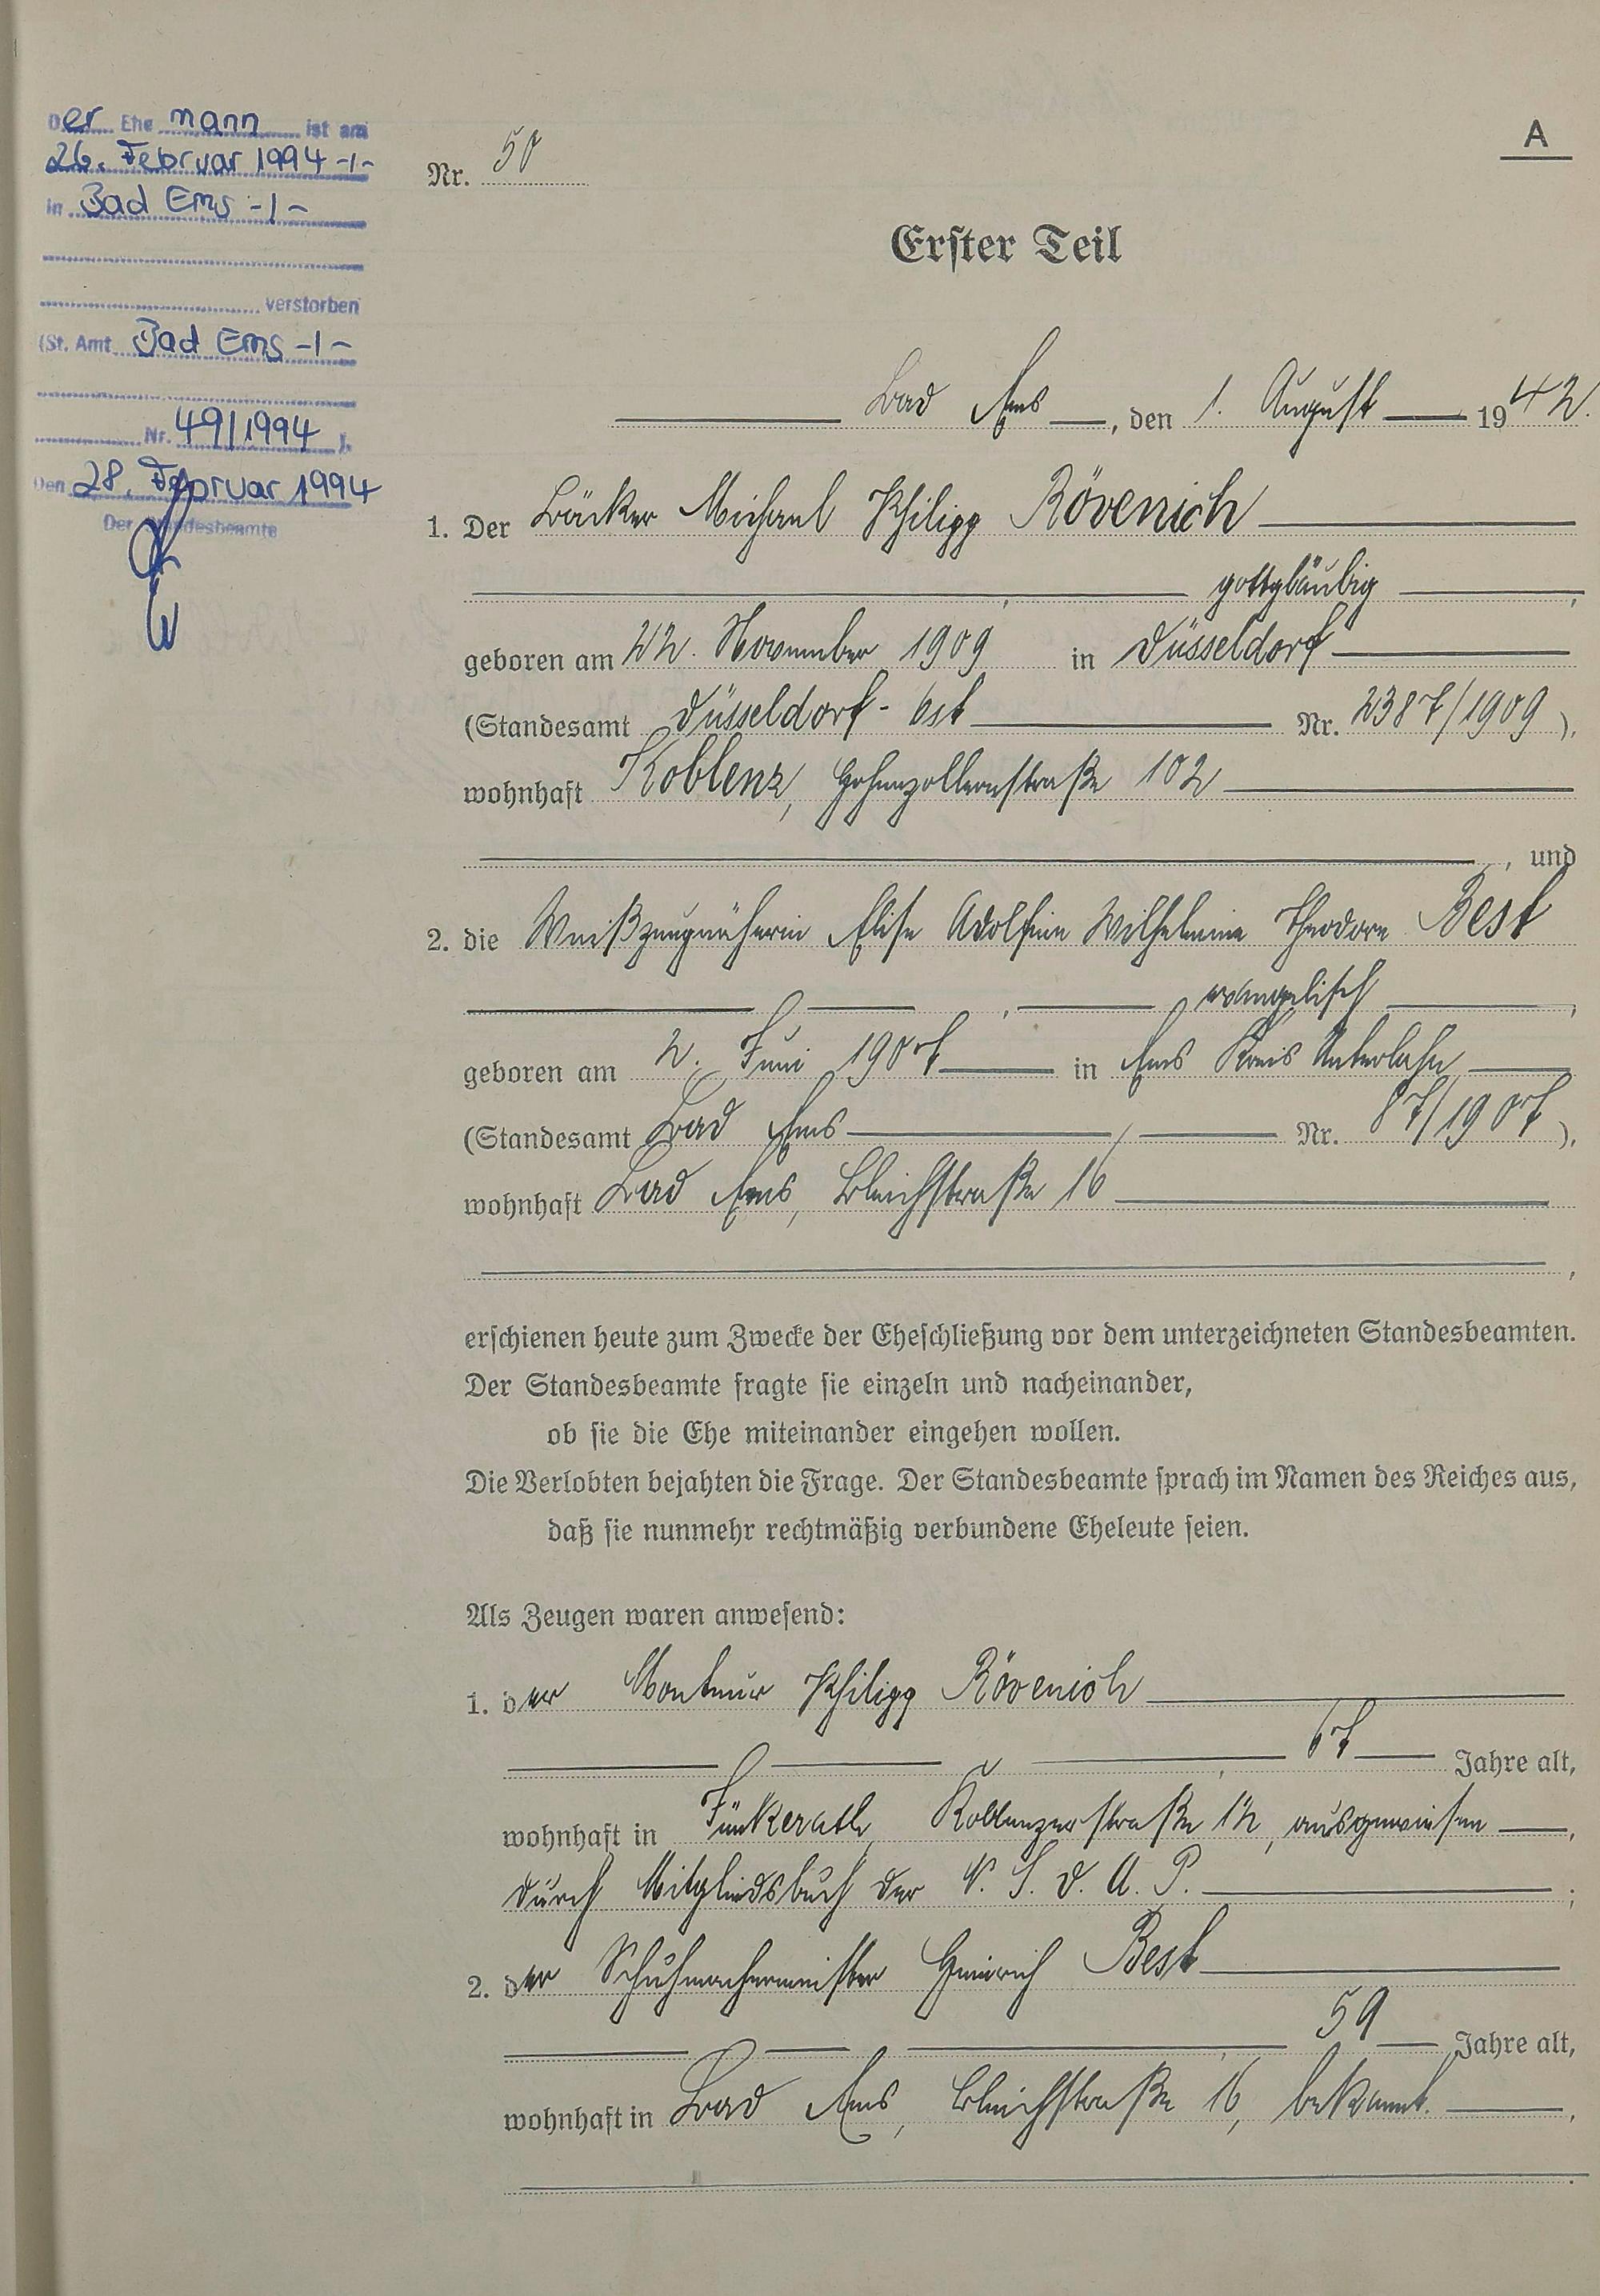 Der Ehe mann ist am
26. Februar 1994 -/-
in Bad Ems -/-
verstorben
(St. Amt Bad Ems -/-
Nr. 49/1994 ).
Den 28. Februar 1994
Der Standesbeamte
A
Nr. 50
Erster Teil
Bad Ems, den 1. August 1942.
1. Der Bäcker Michael Philipp Rövenich
, gottgläubig,
geboren am 22. November 1909 in Düsseldorf
(Standesamt Düsseldorf-Ost Nr. 2387/1909),
wohnhaft Koblenz, Hohenzollernstraße 102
, und
2. die Weißzeugnäherin Elise Adolfine Wilhelmine Theodore Best
, evangelisch,
geboren am 2. Juni in Ems Kreis Unterlahn
(Standesamt Bad Ems Nr.),
wohnhaft Bad Ems, Bleichstraße 16
,
erschienen heute zum Zwecke der Eheschließung vor dem unterzeichneten Standesbeamten.
Der Standesbeamte fragte sie einzeln und nacheinander,
ob sie die Ehe miteinander eingehen wollen.
Die Verlobten bejahten die Frage. Der Standesbeamte sprach im Namen des Reiches aus,
daß sie nunmehr rechtmäßig verbundene Eheleute seien.
Als Zeugen waren anwesend:
1. der Monteur Philipp Rövenich
, Jahre alt,
wohnhaft in Jünkerath, Koblenzerstraße 12, ausgewiesen,
durch Mitgliedsbuch der N. S. d. A. P.;
2. der Schuhmachermeister Heinrich Best
, 59 Jahre alt,
wohnhaft in Bad Ems, Bleichstraße 16, bekannt.,